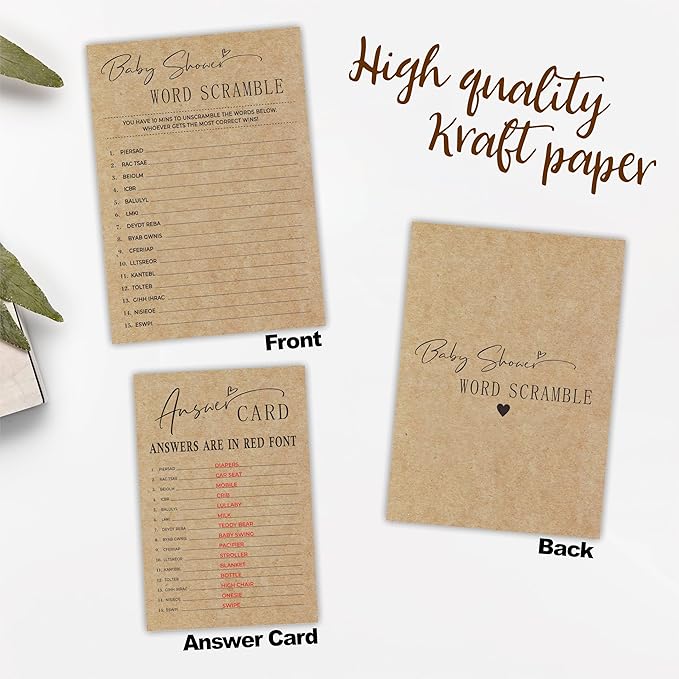 Baby Shower
WORD SCRAMBLE
YOU HAVE 10 MINS TO UNSCRAMBLE THE WORDS BELOW.
WHOEVER GETS THE MOST CORRECT WINS!
1. PIERSAD
2. RAC TSAE
3. BEIOLM
4. ICBR
5. BALULYL
6. LMKI
7. DEYDT REBA
8. BYAB GWNIS
9. CFERIIAP
10. LLTSREOR
11. KANTEBL
12. TOLTEB
13. GIHH IHRAC
14. NISIEOE
15. ESWPI
Front
High quality
Kraft paper
Answer
CARD
ANSWERS ARE IN RED FONT
1. PIERSAD DIAPERS
2. RAC TSAE CAR SEAT
3. BEIOLM MOBILE
4. ICBR CRIB
5. BALULYL LULLABY
6. LMKI MILK
7. DEYDT REBA TEDDY BEAR
8. BYAB GWNIS BABY SWING
9. CFERIIAP PACIFIER
10. LLTSREOR STROLLER
11. KANTEBL BLANKET
12. TOLTEB BOTTLE
13. GIHH IHRAC HIGH CHAIR
14. NISIEOE ONESIE
15. ESWPI SWIPE
Answer Card
Baby Shower
WORD SCRAMBLE
Back